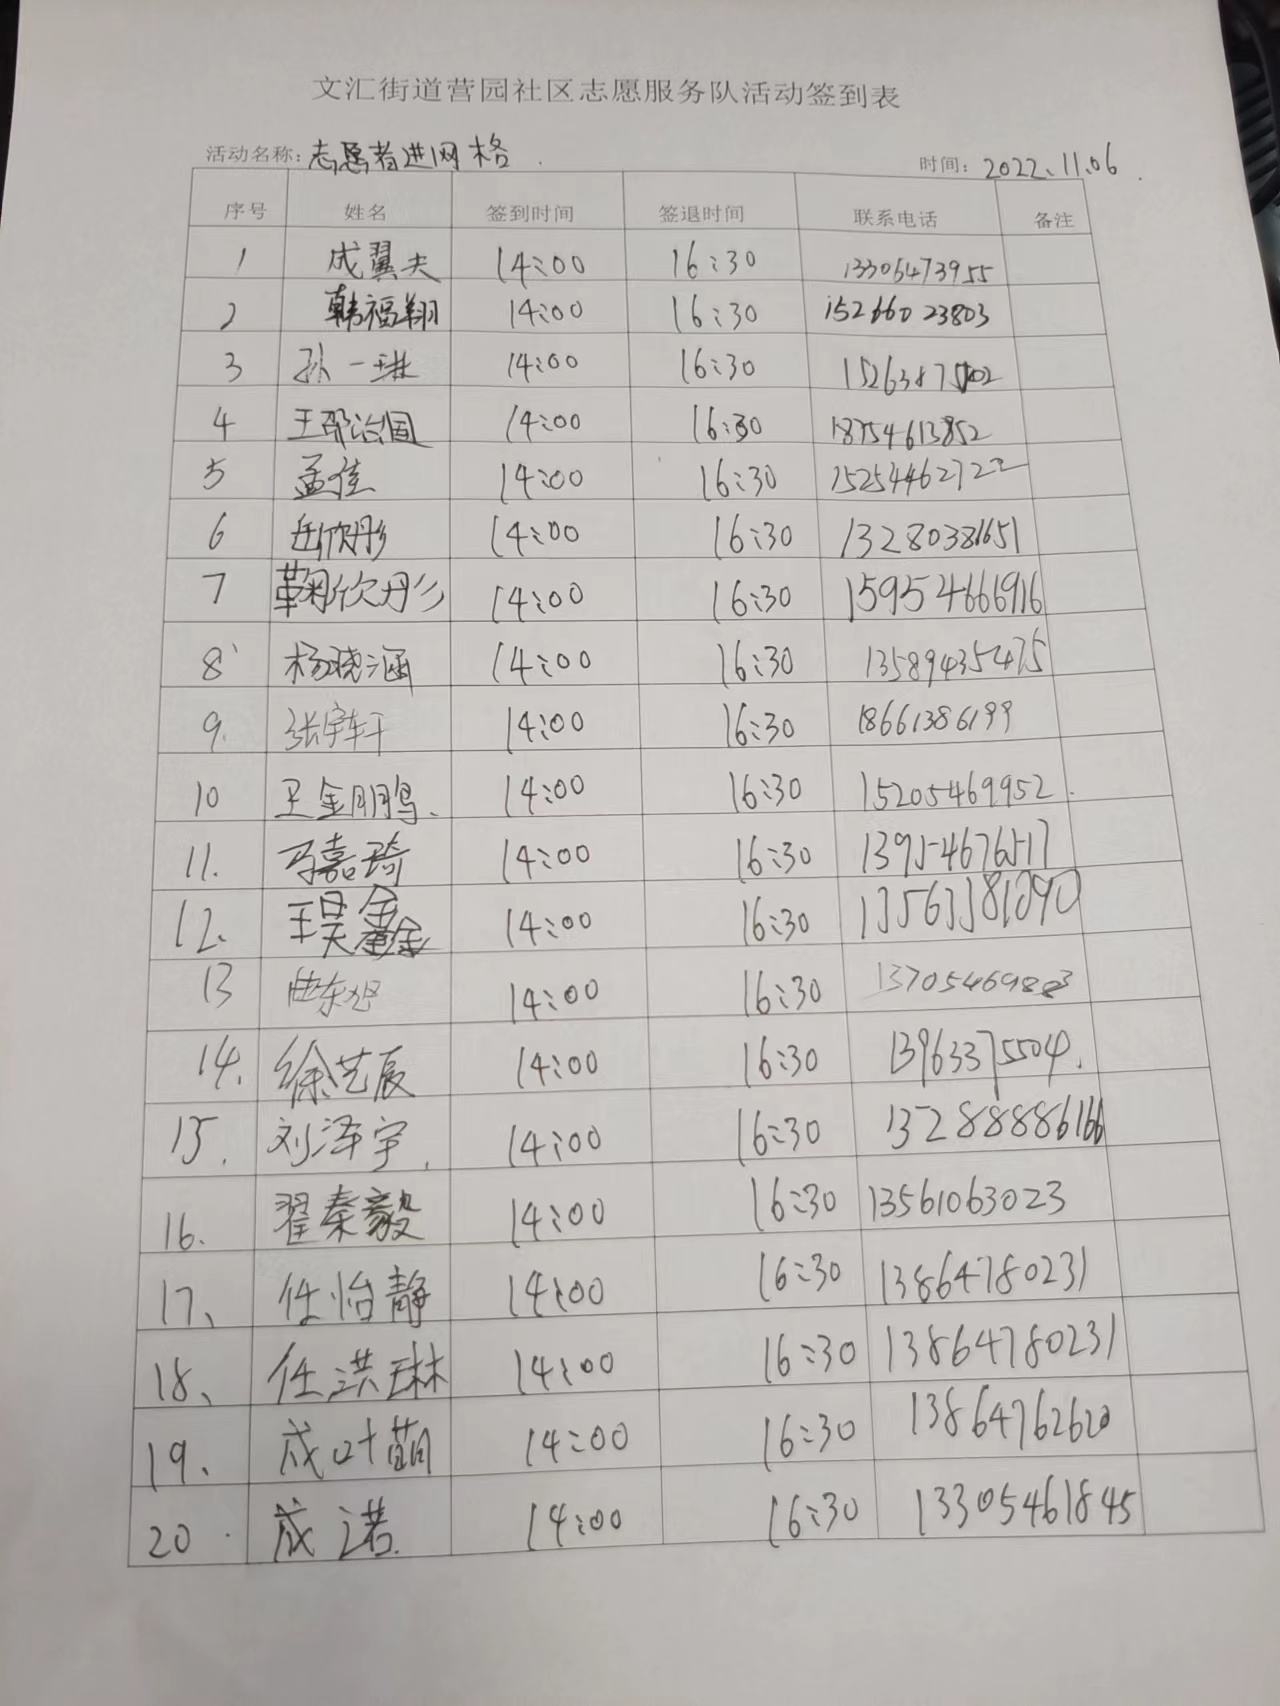 文汇街道营园社区志愿服务队活动签到表
活动名称：志愿者进网格 时间：2022.11.06
序号 姓名 签到时间 签退时间 联系电话 备注
1 成翼夫 14:00 16:30 13306473955
2 韩福翔 14:00 16:30 15266023803
3 孙一琳 14:00 16:30
4 王邵治国 14:00 16:30 18754613852
5 孟佳 14:00 16:30 15254462722
6 岳欣彤 14:00 16:30 13280381651
7 鞠欣彤 14:00 16:30 15954666916
8 杨晓涵 14:00 16:30 13589435475
9. 张宇轩 14:00 16:30 18661386199
10 王金鹏 14:00 16:30 15205469952
11. 马嘉琦 14:00 16:30 13954676517
12. 王昊鑫 14:00 16:30
13 14:00 16:30
14. 徐艺辰 14:00 16:30 13963375504
15. 刘泽宇 14:00 16:30 13288886166
16. 翟秦毅 14:00 16:30 13561063023
17、 任怡静 14:00 16:30 13864780231
18、 任洪琳 14:00 16:30 13864780231
19、 成叶萌 14:00 16:30 13864762620
20 成诺 14:00 16:30 13305461845